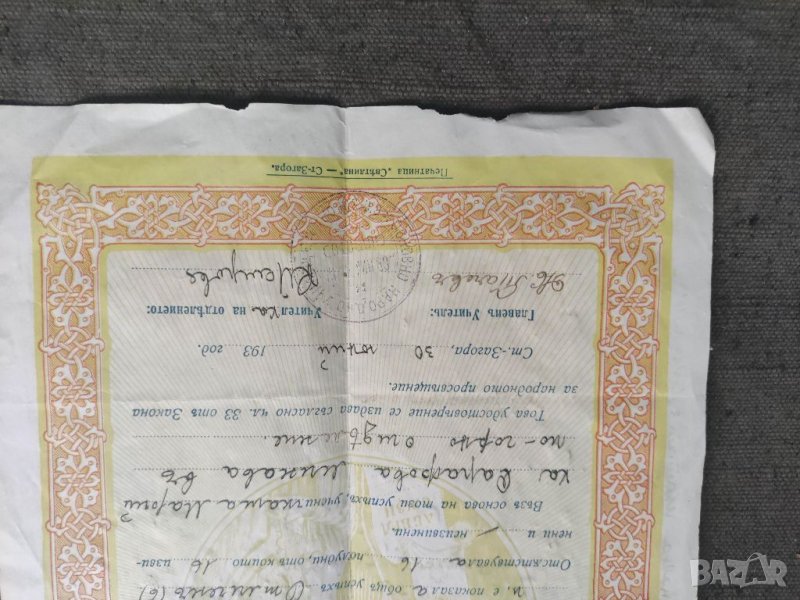 и, е показала общъ успѣхъ Отличенъ (6)
Отсѫтствувала 16 полудни, отъ които 16 изви-
нени и / неизвинени.
Възъ основа на този успѣхъ, ученичката Марий
ка Сарафова минава въ
по-горно отдѣление.
Това удостовѣрение се издава съгласно чл. 33 отъ Закона
за народното просвѣщение.
Ст.-Загора, 30 юний 193 год.
Главенъ Учитель: Учителка на отдѣлението:
Печатница „Свѣтлина“ — Ст-Загора.
BAZAR